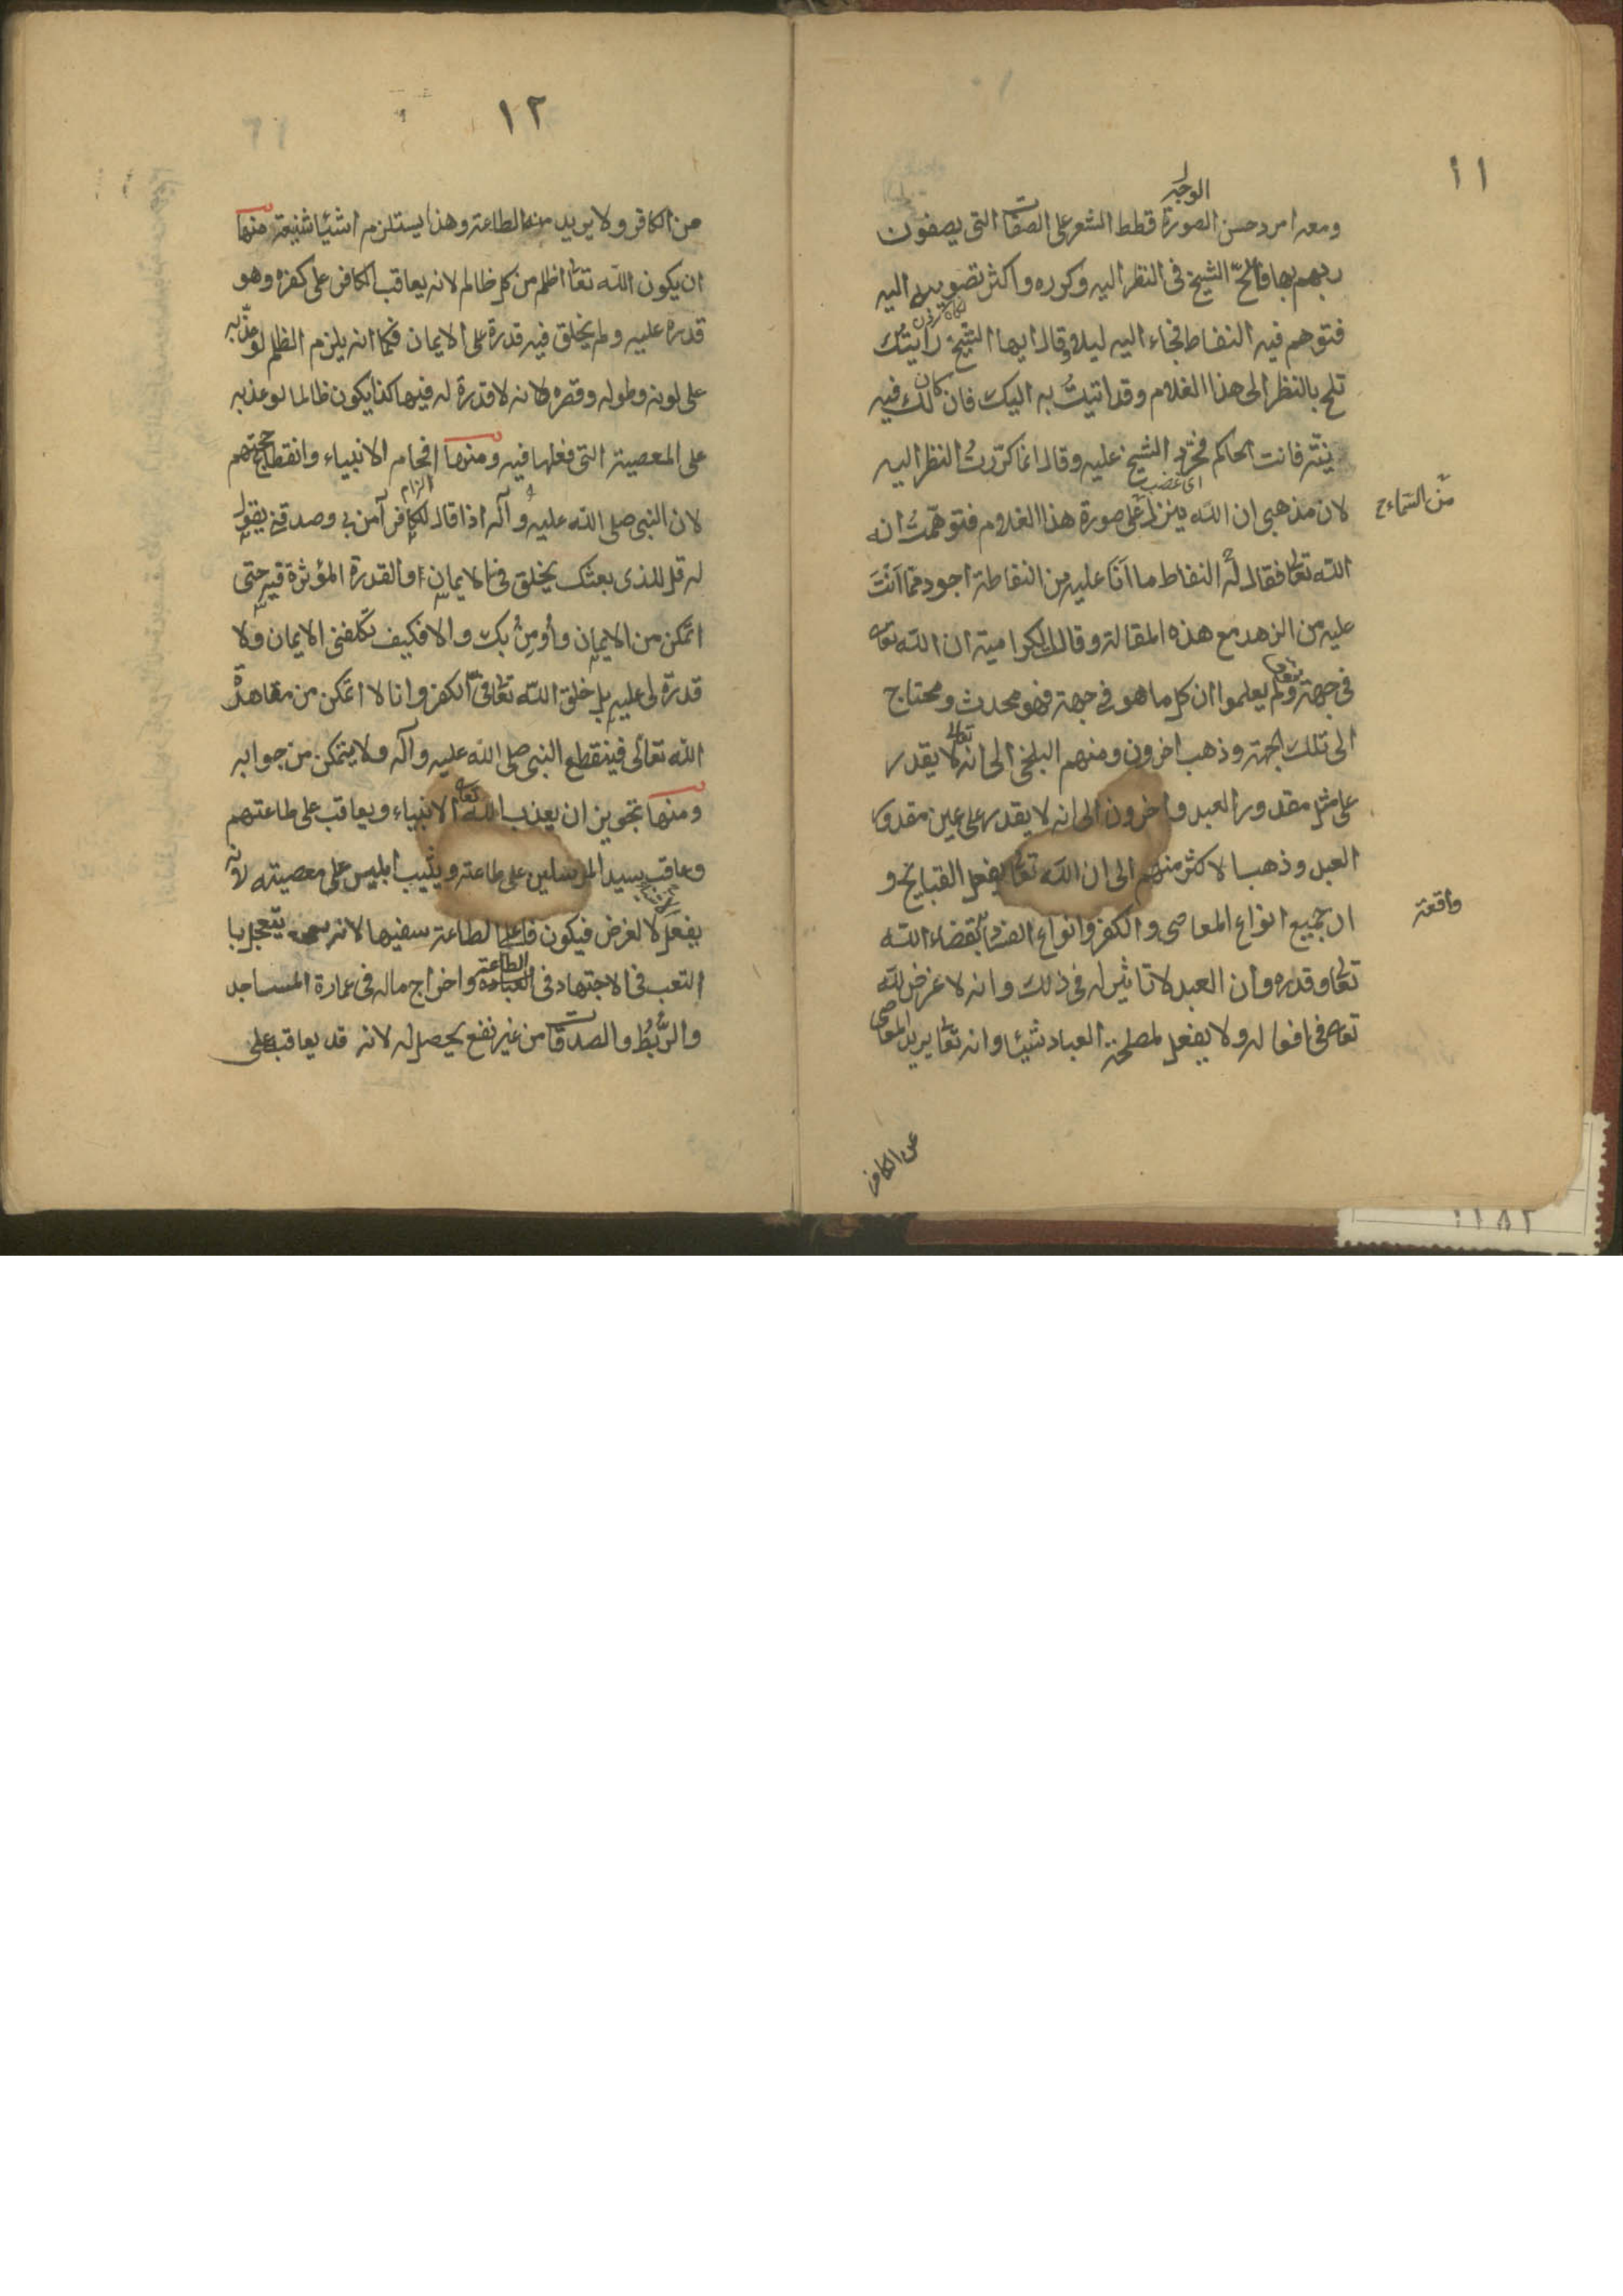 ١١
الوجه
ومعه امرد حسن الصورة قطط الشعر على الصفات التى يصفون
ربهم بها فالحّ الشيخ فى النظر اليه وكرره واكثر تصويبه اليه
فتوهم فيه النفاط فجاء اليه ليلا وقال ايها الشيخ رايتك
تلح بالنظر الى هذا الغلام وقد اتيتُ به اليك فان كان لك فيه
نيّة فانت الحاكم فحرد الشيخ عليه وقال انما كرّرتُ النظر اليه
اى غضب
لان مذهبى ان الله ينزل على صورة هذا الغلام فتوهّمتُ انه
من السماء ح
الله تعالى فقال له النفاط ما انَا عليه من النفاطة اجود مما انتَ
عليه من الزهد مع هذه المقالة وقالت الكرامية ان الله تعالى
فى جهة ولم يعلموا ان كل ما هو فى جهة فهو محدث ومحتاج
الى تلك الجهة وذهب اخرون ومنهم البلخى الى انه تعالى لا يقدر
على مثل مقدور العبد واخرون الى انه لا يقدر على عين مقدور
العبد وذهب الاكثر منهم الى ان الله تعالى يفعل القبايح و
ان جميع انواع المعاصى والكفر وانواع الفساد بقضاء الله
واقعة
تعالى وقدره وان العبد لا تاثير له فى ذلك وانه لا غرض لله
تعالى فى افعاله ولا يفعل لمصلحة العباد شيئا وانه تعالى يريد المعاصى
من الكافر
١٢
من الكافر ولا يريد منه الطاعة وهذا يستلزم اشيئا شنيعة منها
ان يكون الله تعالى اظلم من كل ظالم لانه يعاقب الكافر على كفره وهو
قدره عليه ولم يخلق فيه قدرة على الايمان فكما انه يلزم الظلم لو عذّبه
على لونه وطوله وقصره لانه لا قدرة له فيها كذا يكون ظالما لو عذبه
على المعصية التى فعلها فيه ومنها افحام الانبياء وانقطاع حجتهم
الزام
لان النبى صلى الله عليه وآله اذا قال للكافر آمن بى وصدقنى يقول
له قل للذى بعثك يخلق فىّ الايمان او القدرة المؤثرة فيه حتى
اتمكن من الايمان وأومِنُ بك والا فكيف تكلفنى الايمان ولا
قدرة لى عليه بل خلق الله تعالى فىّ الكفر وانا لا اتمكن من مقاهرة
الله تعالى فينقطع النبى صلى الله عليه وآله ولا يتمكن من جوابه
ومنها تجويز ان يعذب الله تعالى الانبياء ويعاقب على طاعتهم
وعاقب سيد المرسلين على طاعته ويثيب ابليس على معصيته لانه
يفعل لا لغرض فيكون فاعل الطاعة سفيها لانه يتعجل با
التعب فى الاجتهاد فى العبادة الطاعة واخراج ماله فى عمارة المساجد
والرُّبُط والصدقات من غير نفع يحصل له لانه قد يعاقب على